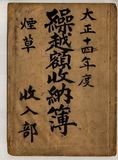 大正十四年度
繰越額収納簿
煙草
収入部